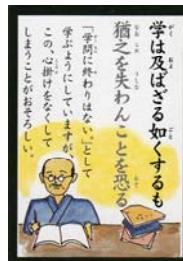 学は及ばざる如くするも
猶之を失わんことを恐る
「学問に終わりはない。」として
学ぶようにしていますが、
この、心掛けをなくして
しまうことがおそろしい。